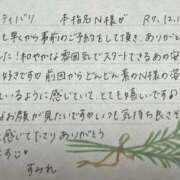 ティバリ 本指名N様が R7.12.1
も早くから事前のご予約をして頂き、ありがと
た！和やかな雰囲気でスタートできるあの安
好きですが前回からどんどん素のN様の姿
るように感じていて、とても嬉しいです♪
お顔が見たいですかいつも気持ち良さそ
に感じて下さりありがとう
ます♡
すみれ